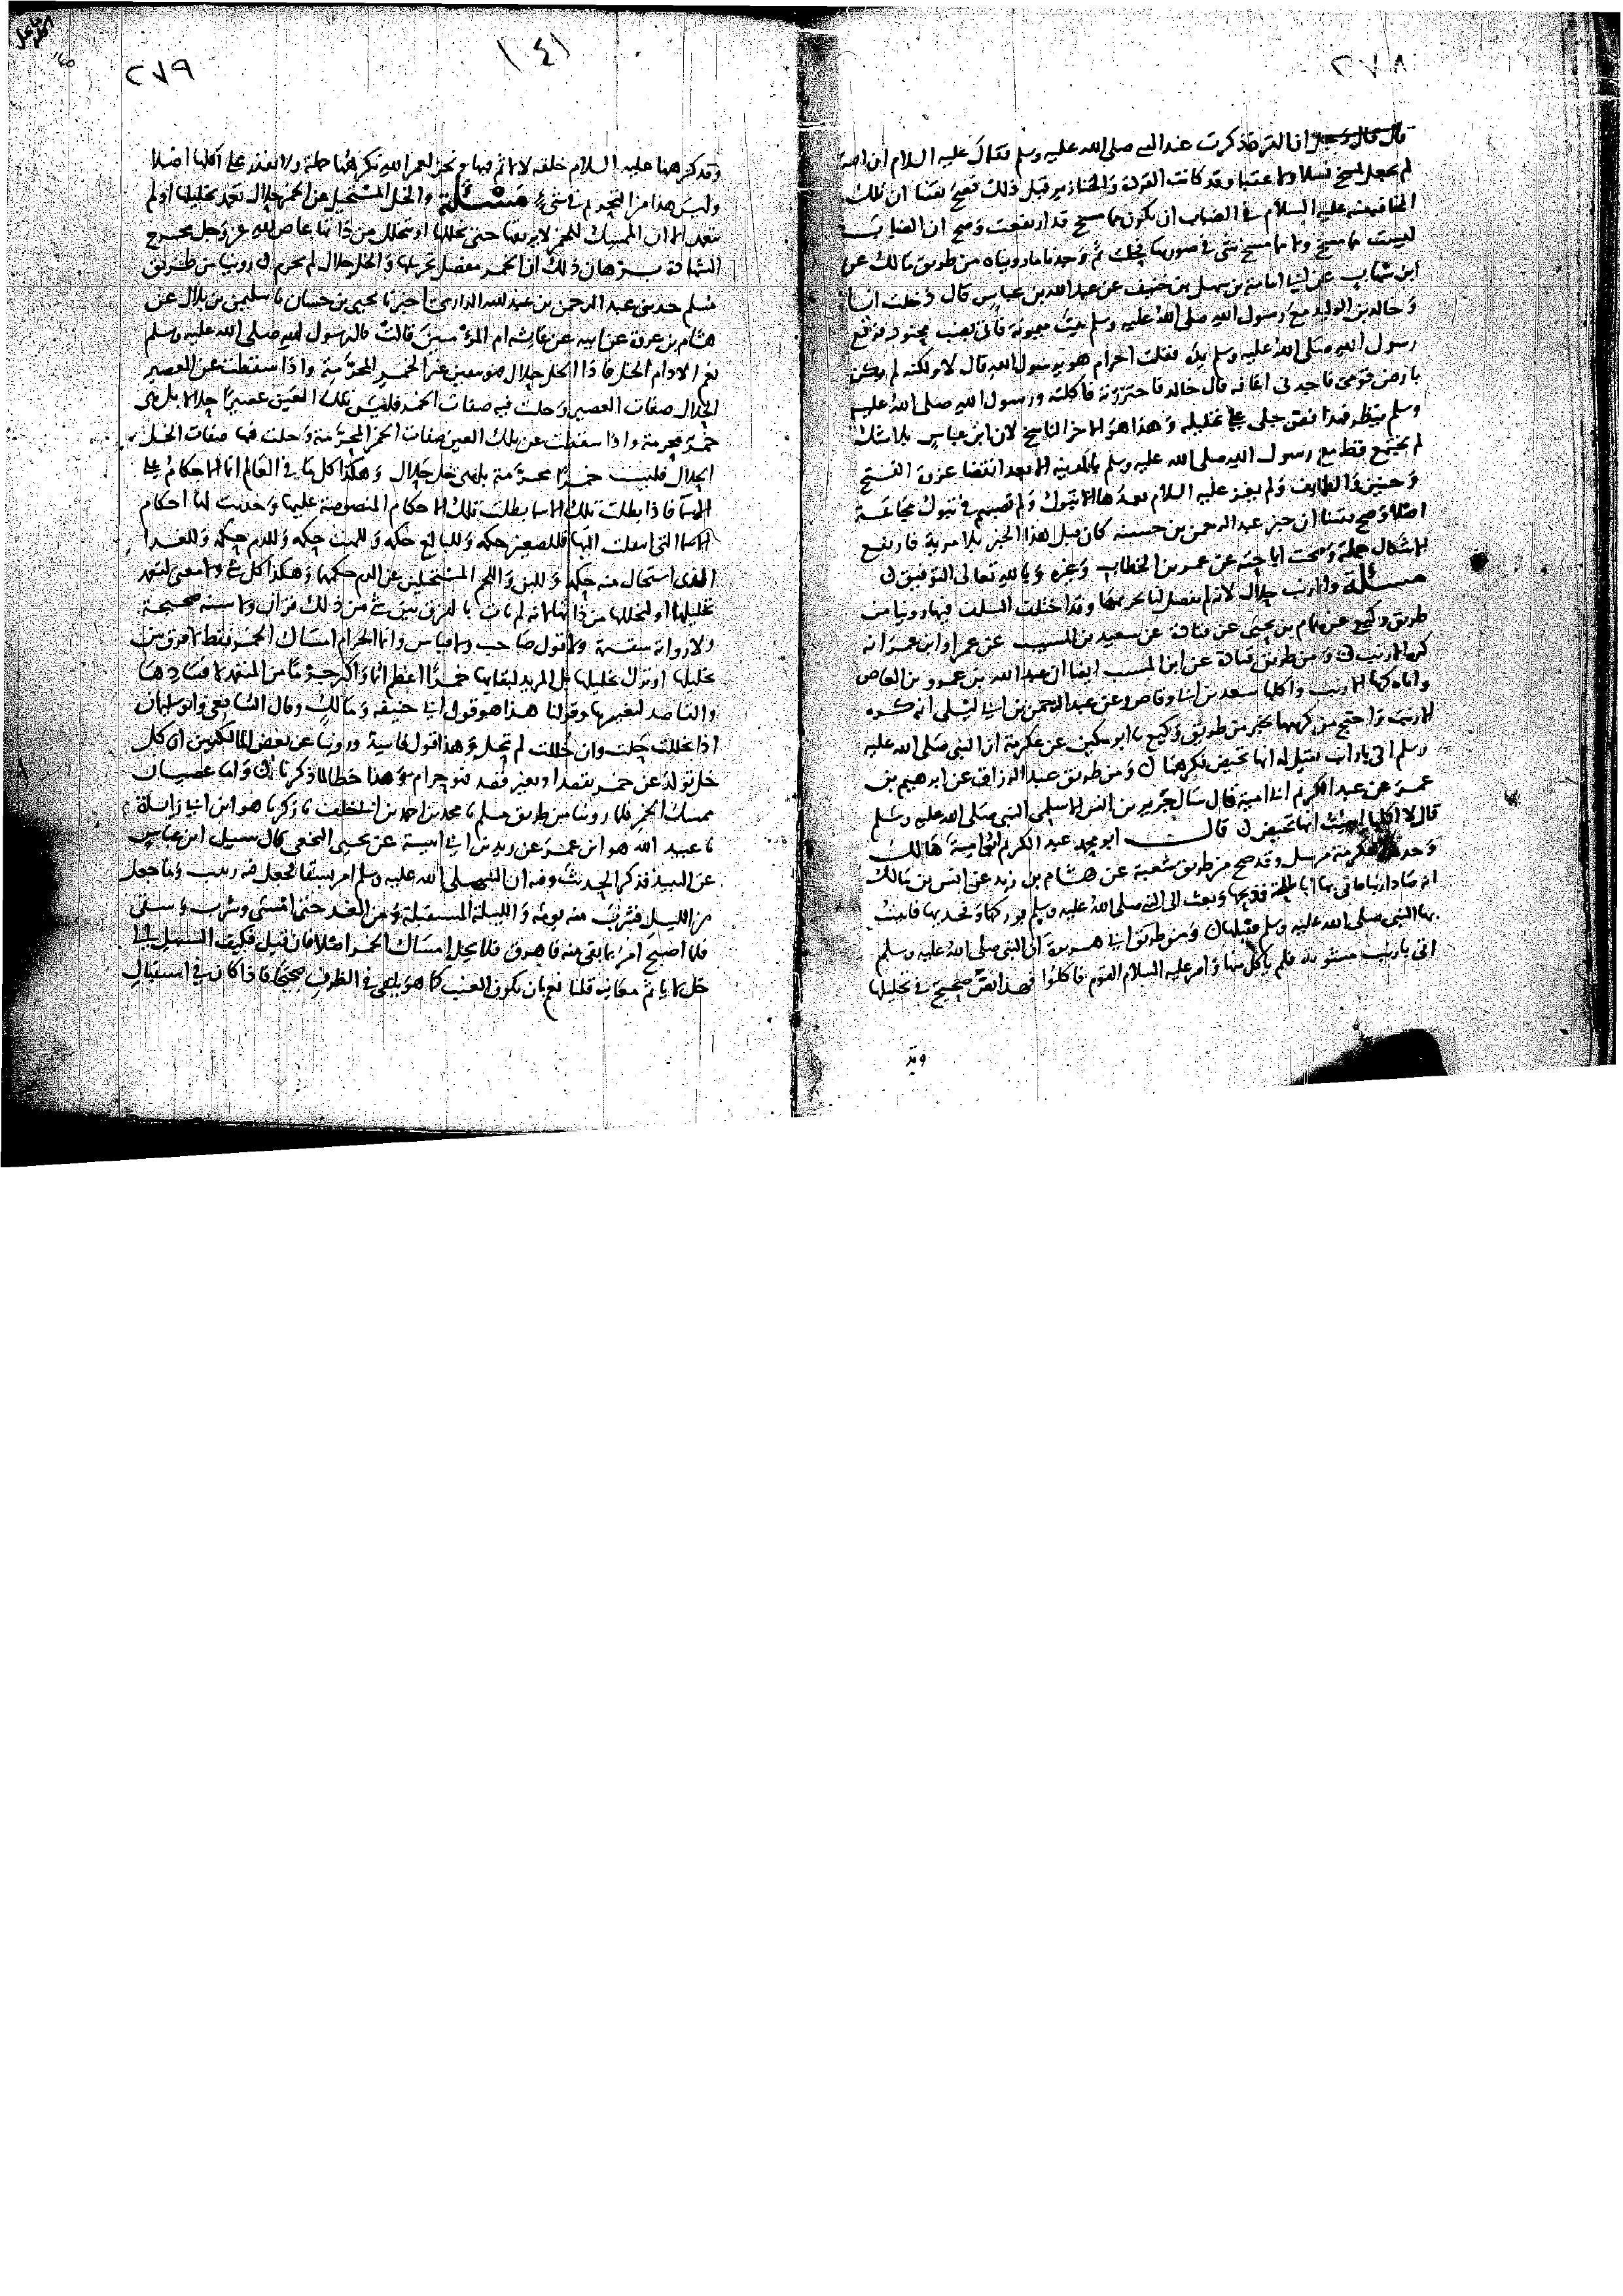 ٢٧٨
ان القردة ذكرت عند النبي صلى الله عليه وسلم فقال عليه السلام ان الله
لم يجعل لمسخ نسلا ولا عقبا وقد كانت القردة والخنازير قبل ذلك فصح يقينا ان تلك
المخافة منه عليه السلام في الضباب ان يكون مما مسخ قد ارتفعت وصح ان الضباب
ليست مما مسخ ولا مما مسخ شي في صورتها فحلت ثم وجدنا ما رويناه من طريق مالك عن
ابن شهاب عن ابي امامة بن سهل بن حنيف عن عبد الله بن عباس قال دخلت انا
وخالد بن الوليد مع رسول الله صلى الله عليه وسلم بيت ميمونة فاتى بضب محنوذ فرفع
رسول الله صلى الله عليه وسلم يده فقلت احرام هو يرسول الله قال لا ولكنه لم يكن
بارض قومي فاجدني اعافه قال خالد فاجتررته فاكلته ورسول الله صلى الله عليه
وسلم ينظر فهذا نص جلي على تحليله وهذا هو الاخر الناسخ لان ابن عباس بلا شك
لم يجتمع قط مع رسول الله صلى الله عليه وسلم بالمدينة الا بعد انقضا غزوة الفتح
وحنين والطايف ولم يغز عليه السلام بعدها الا تبوك ولم تصبهم في تبوك مجاعة
اصلا وصح يقينا ان خبر عبد الرحمن بن حسنة كان قبل هذا الخبر بلا مرية فارتفع
الاشكال جملة وصحت اباحته عن عمر بن الخطاب وغيره وبالله تعالى التوفيق
مسئلة والارنب حلال لانه لم يفصل لنا تحريمها وقد اختلف السلف فيها روينا من
طريق وكيع عن همام بن يحيى عن قتادة عن سعيد بن المسيب عن عمرو او ابن عمر انه
كره الارنب ومن طريق قتادة عن ابن المسيب ايضا ان عبد الله بن عمرو بن العاص
واباه كرها الارنب واكلها سعد بن ابي وقاص وعن عبد الرحمن بن ابي ليلى انه كره
الارنب واحتج من كرهها بخبر من طريق وكيع نا ابو مكين عن عكرمة ان النبي صلى الله عليه
وسلم اتى بارنب فقيل له انها تحيض فكرهها ومن طريق عبد الرزاق عن ابرهيم بن
عمر عن عبد الكريم ابي امية قال سال جرير بن انس الاسلمي النبي صلى الله عليه وسلم
قال لا اكلها انها تحيض قال ابو محمد عبد الكريم ابو امية هالك
وحديث عكرمة مرسل وقد صح من طريق شعبة عن هشام بن زيد عن انس بن مالك
انه صاد ارنبا فاتى بها ابا طلحة فذبحها وبعث الى النبي صلى الله عليه وسلم بوركها وفخذيها فاتيت
بها النبي صلى الله عليه وسلم فقبلها ومن طريق ابي هريرة ان النبي صلى الله عليه وسلم
اتى بارنب مشوية فلم ياكل منها وامر عليه السلام القوم فاكلوا فهذا نص صحيح في تحليلها
وقد
(٤)
٢٧٩
وقد كرهها عليه السلام خلقة لا اثم فيها ونحن لعمر الله نكرهها جملة ولا نقدر على اكلها اصلا
وليس هذا من التحريم في شي مسئلة والخل المستحيل من الخمر حلال تعمد تخليلها او لم
يتعمد الا ان الممسك للخمر لا يريقها حتى يخللها او تتخلل من ذاتها عاص لله عز وجل مجرح
الشهادة برهان ذلك ان الخمر مفصل تحريمها والخل حلال لم يحرم روينا من طريق
مسلم حدثني عبد الرحمن بن عبد الله الدارمي اخبرنا يحيى بن حسان نا سليمن بن بلال عن
هشام بن عروة عن ابيه عن عايشه ام المؤمنين قالت قال رسول الله صلى الله عليه وسلم
نعم الادام الخل فاذا الخل حلال فهو بيقين غير الخمر المحرمة واذا سقطت عن العصير
الحلال صفات العصير وحلت فيه صفات الخمر فليست تلك العين عصيرا حلالا بل هي
خمر محرمة واذا سقطت عن تلك العين صفات الخمر المحرمة وحلت فيها صفات الخل
الحلال فليست خمرا محرمة بل هي خل حلال وهكذا كل ما في العالم انما الاحكام على
الاسما فاذا بطلت تلك الاسما بطلت تلك الاحكام المنصوصة عليها وحدثت لها احكام
الاسما التي انتقلت اليها فللصغير حكمه وللبالغ حكمه وللميت حكمه وللدم حكمه وللغذا
الذي استحال منه حكمه وللبن واللحم المستحيلين عن الدم حكمهما وهكذا كل شي ولا معنى لتعمد
تخليلها او لتخللها من ذاتها لانه لم يات بالفرق بين شي من ذلك قران ولا سنة صحيحة
ولا رواية سقيمة ولا قول صاحب ولا قياس وانما الحرام امساك الخمر فقط لا فرق بين
تخليلها او ترك تخليلها بل المريد لبقايها خمرا اعظم اثما واكبر جرما من المتعمد لافسادها
والقاصد لتغييرها وقولنا هذا هو قول ابي حنيفة ومالك وقال الشافعي وابو سليمان
اذا تخللت حلت وان خللت لم تحل وهذا قول فاسد وروينا عن بعض المالكيين ان كل
خل تولد عن خمر بقصد او بغير قصد فهو حرام وهذا خطا لما ذكرنا واما عصيان
ممسك الخمر فلما روينا من طريق مسلم نا محمد بن احمد بن ابي خلف نا زكريا هو ابن
نا عبيد الله هو ابن عمرو عن زيد بن ابي انيسة عن يحيى النخعي قال سيل ابن عباس
عن النبيذ فذكر الحديث وفيه ان النبي صلى الله عليه وسلم امر بسقا فجعل فيه زبيب وما فجعل
من الليل فشرب منه يومه والليلة المستقبلة ومن الغد حتى امسى وشرب وسقى
فلما اصبح امر بما بقي منه فاهريق فلا يحل امساك الخمر اصلا فان قيل فكيف السبيل الى
خل لا ياثم معانيه قلنا نعم بان يكون العنب كما هو يلقى في الظرف صحيحا فاذا كان في استقبال